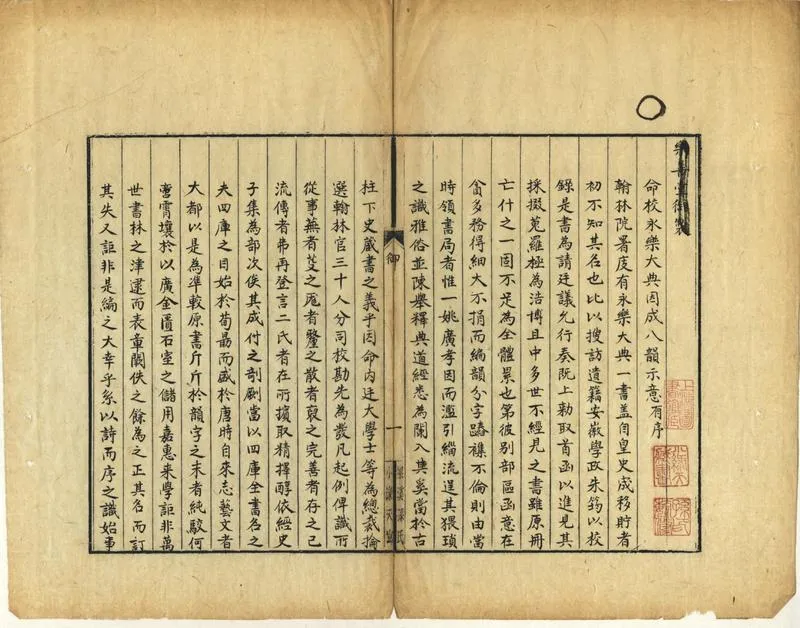 命校永樂大典因成八韻示意有序
翰林院署庋有永樂大典一書盖自皇史成移貯者
初不知其名也比以搜訪遺籍安徽學政朱筠以校
錄是書為請廷議允行奏既上勅取首函以進見其
採掇蒐羅極為浩博且中多世不經見之書雖原冊
亡什之一固不足為全體累也第彼別部區函意在
貪多務得細大不捐而編韻分字踳襍不倫則由當
時領書局者惟一姚廣孝因而濫引緇流逞其猥瑣
之識雅俗並陳舉釋典道經悉為闌入其奚當於古
柱下史蔵書之義乎因命内廷大學士等為總裁掄
選翰林官三十人分司校勘先為裁凡起例俾識所
從事蕪者芟之厖者釐之散者裒之完善者存之已
流傳者弗再登言二氏者在所擯取精擇醇依經史
子集為部次俟其成付之剞劂當以四庫全書名之
夫四庫之目始於荀勗而盛於唐時自來志藝文者
大都以是為準較原書斤斤於韻字之末者純駮何
啻霄壤於以廣金匱石室之儲用嘉惠來學詎非萬
世書林之津逮而表章闕佚之餘為之正其名而訂
其失又詎非是編之大幸乎系以詩而序之識始事
御
一